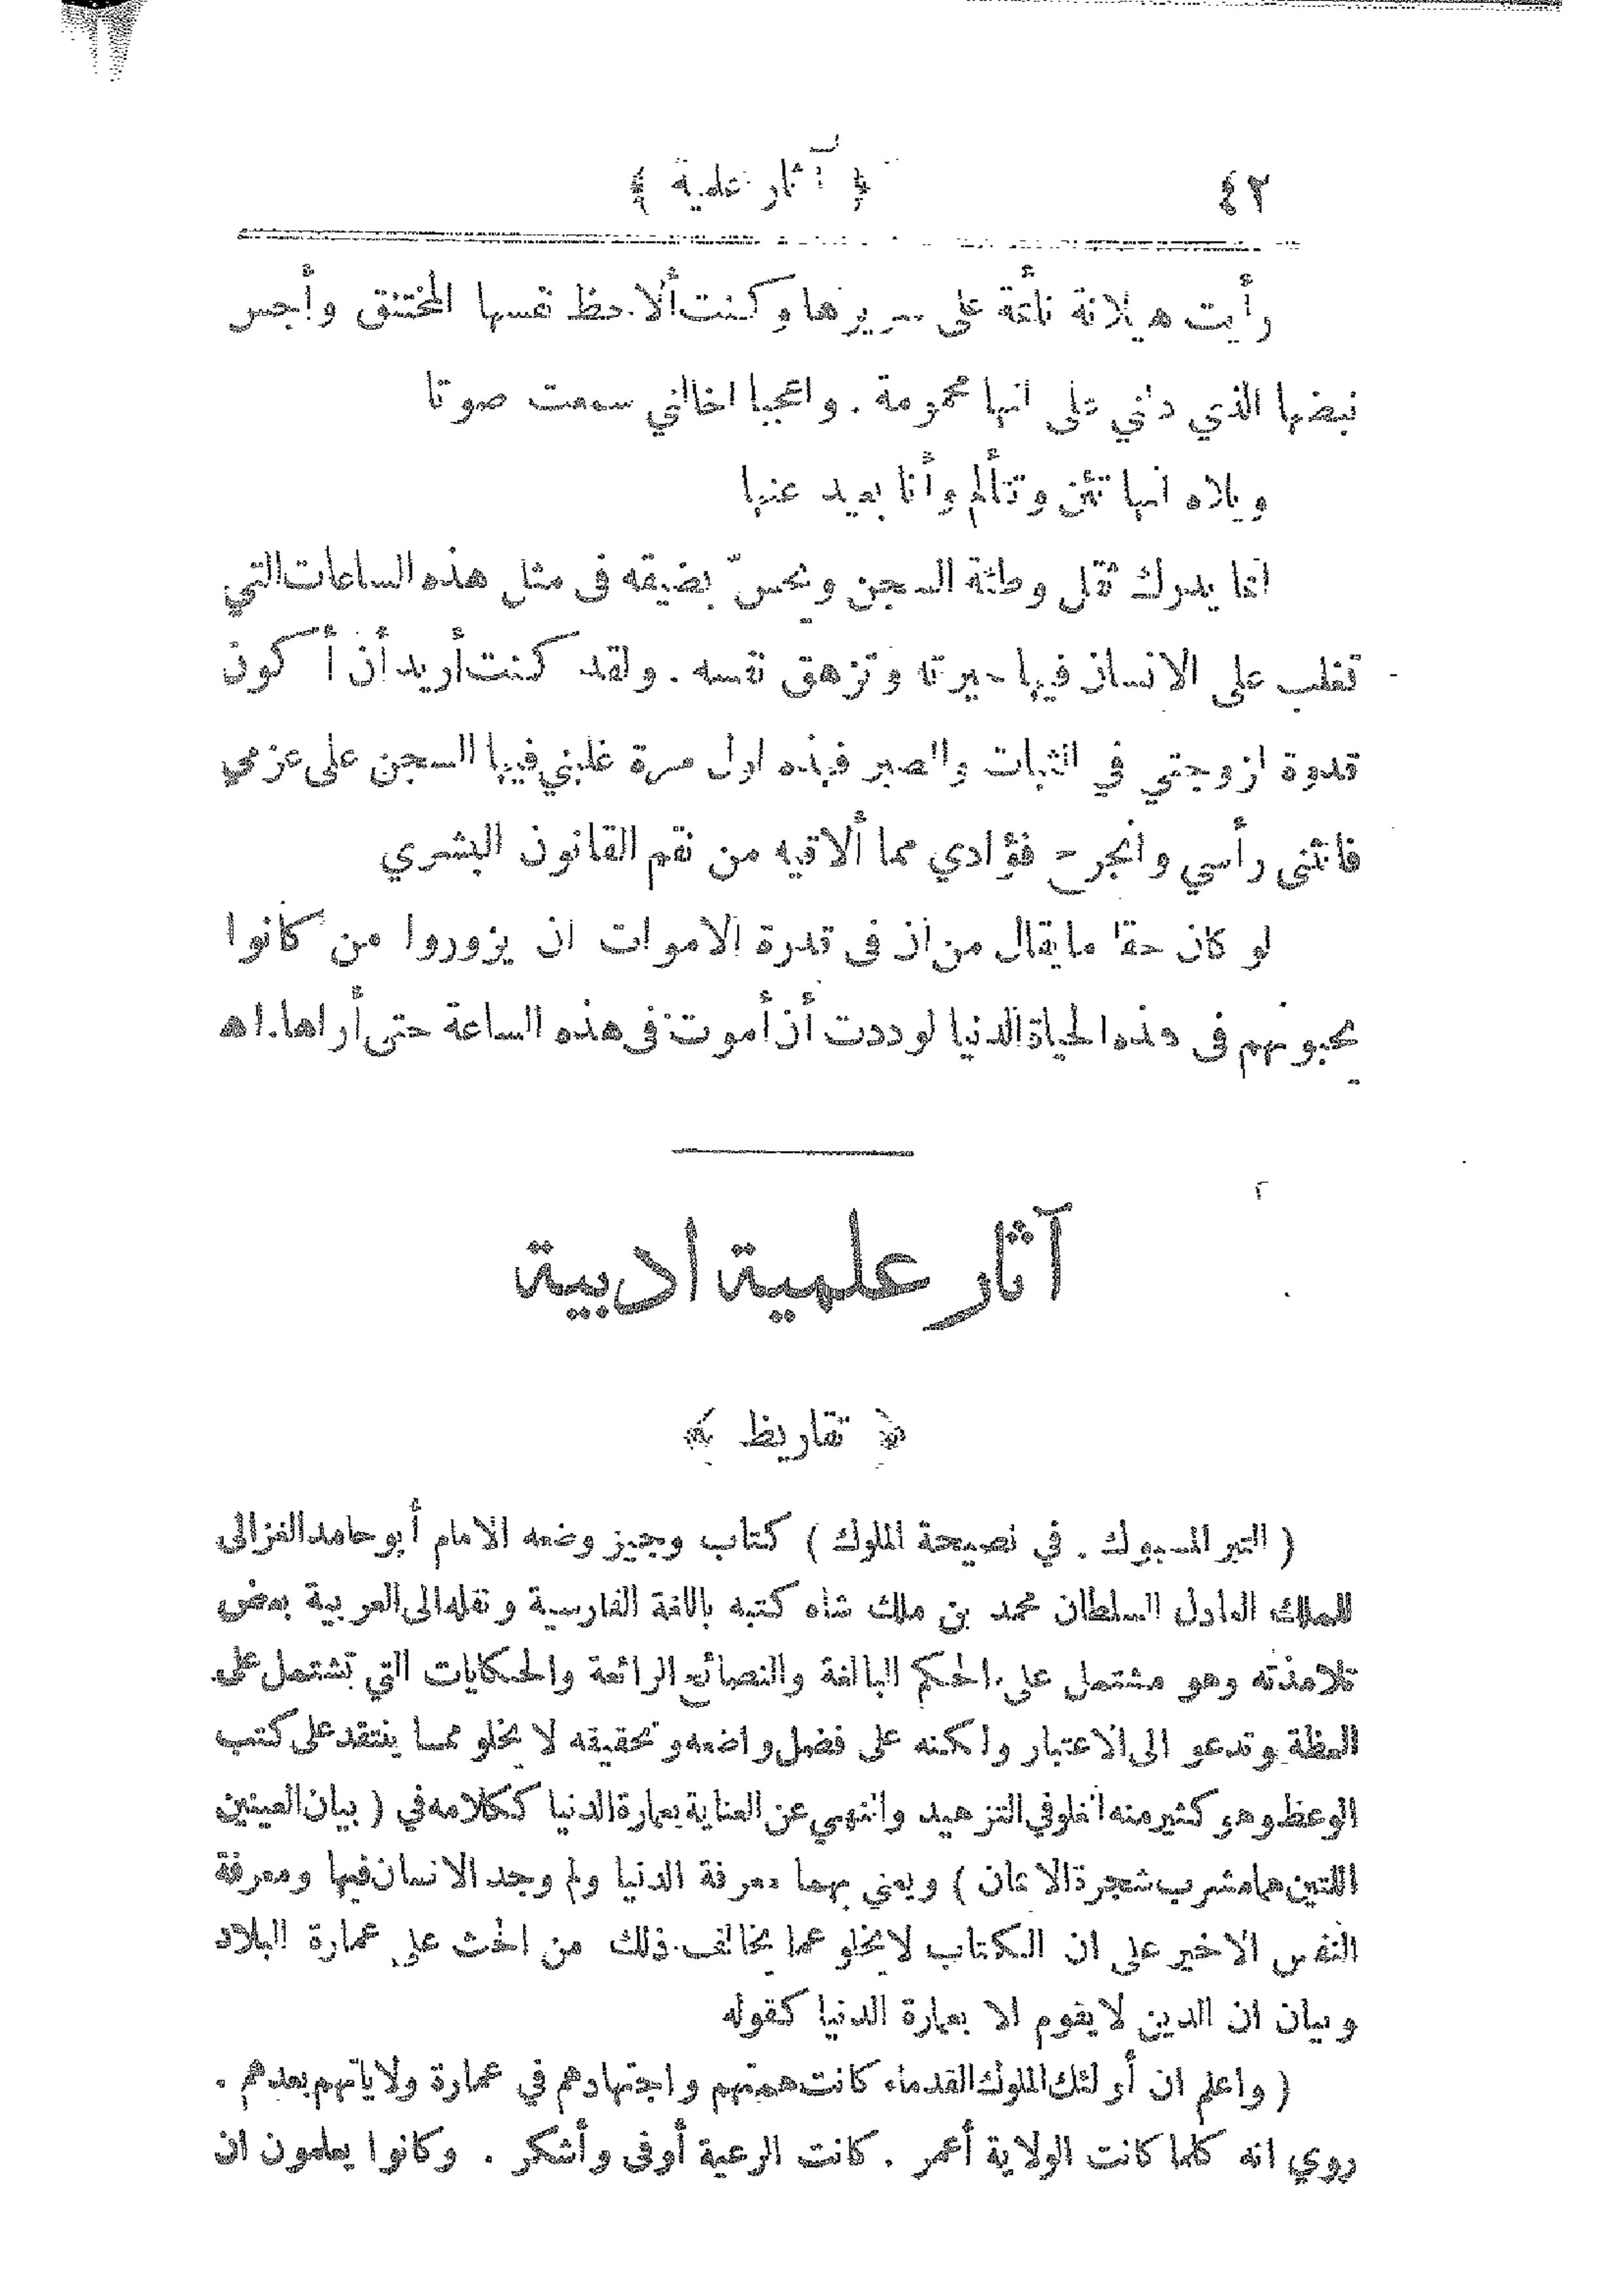 ٤٢
﴿ آثار علمية ﴾
رأيت هيلانة نائمة على سريرها وكنت ألاحظ نفسها المختنق وأجس
نبضها الذي دلني على انها محمومة . واعجبا اخالني سمعت صوتا
ويلاه انها تئن وتتألم وأنا بعيد عنها
انما يدرك ثقل وطئة السجن ويحسّ بضيقه فى مثل هذه الساعات التي
تغلب على الانسان فيها حيرته وتزهق نفسه . ولقد كنت أريد أن أكون
قدوة لزوجتي في الثبات والصبر فهذه اول مرة غلبني فيها السجن على عزمي
فانثنى رأسي وانجرح فؤادي مما ألاقيه من نقم القانون البشري
لو كان حقا ما يقال من ان فى قدرة الاموات ان يزوروا من كانوا
يحبونهم فى هذه الحياة الدنيا لوددت أن أموت فى هذه الساعة حتى أراها. اهـ
آثار علمية ادبية
﴿ تقاريظ ﴾
( التبر المسبوك . في نصيحة الملوك ) كتاب وجيز وضعه الامام أبو حامد الغزالى
للملك العادل السلطان محمد بن ملك شاه كتبه باللغة الفارسية ونقله الى العربية بعض
تلامذته وهو مشتمل على الحكم البالغة والنصائح الرائعة والحكايات التي تشتمل على
العظة وتدعو الى الاعتبار ولكنه على فضل واضعه وتحقيقه لا يخلو مما ينتقد على كتب
الوعظ وهو كثير منه الغلو في التزهيد والنهي عن العناية بعمارة الدنيا ككلامه في ( بيان العينين
اللتين هما مشرب شجرة الايمان ) ويعني بهما معرفة الدنيا ولم وجد الانسان فيها ومعرفة
النفس الاخير على ان الكتاب لا يخلو عما يخالف ذلك من الحث على عمارة البلاد
وبيان ان الدين لا يقوم الا بعمارة الدنيا كقوله
( واعلم ان أولئك الملوك القدماء كانت همتهم واجتهادهم في عمارة ولاياتهم بعدهم .
روي انه كلما كانت الولاية أعمر . كانت الرعية أوفى وأشكر . وكانوا يعلمون ان